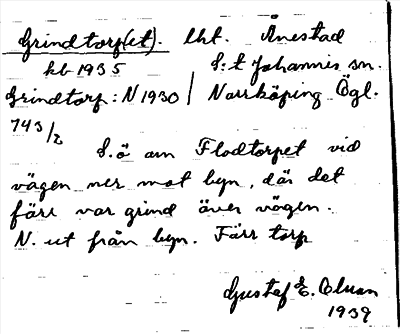 Grindtorp(et). lht. Ånestad
kb 1935 S:t Johannis sn.
Grindtorp: N 1930 Norrköping Ögl.
743/2
S.ö om Flodtorpet vid
vägen ner mot byn, där det
förr var grind över vägen.
N. ut från byn. Förr torp
Gustaf E. Olsson
1939